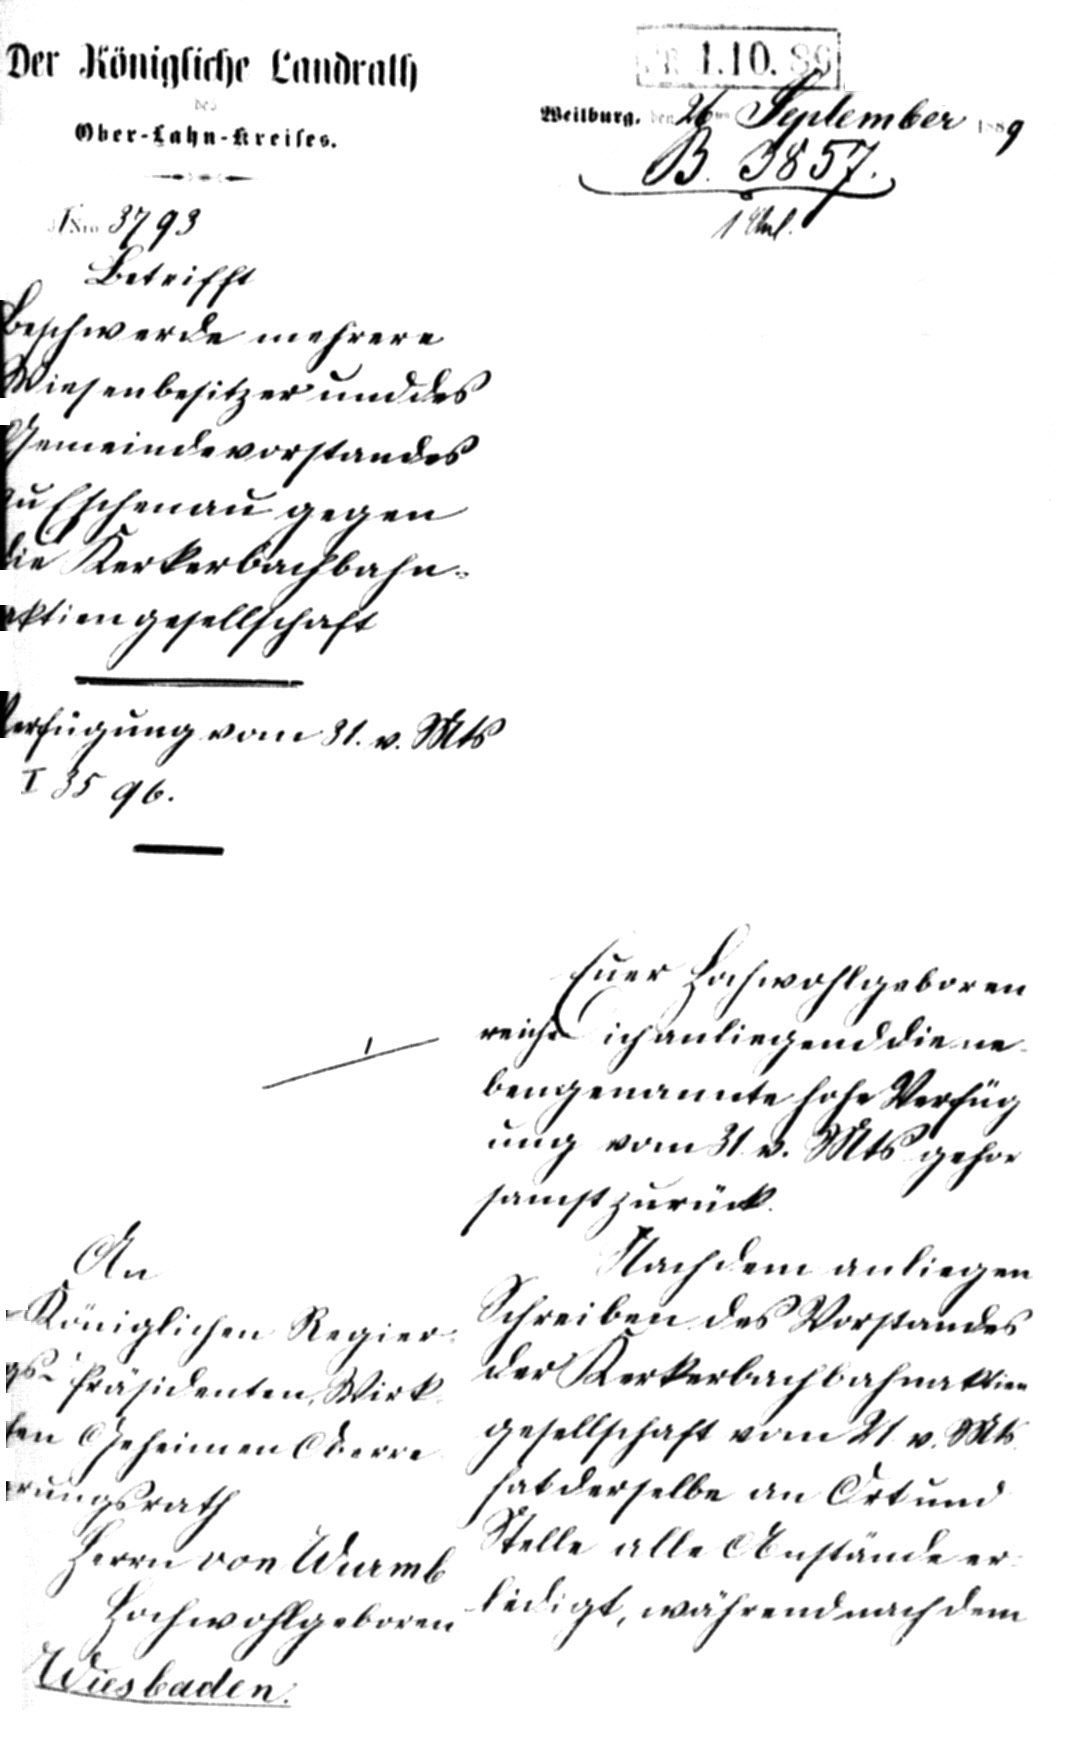 Der Königliche Landrath
des
Ober-Lahn-Kreises.
1.10.89
Weilburg, den 26ten September 1889
B. 3857.
JNro 3793
Betrifft
Beschwerde mehrere
Wiesenbesitzer und des
Gemeindevorstandes
zu Eschenau gegen
die Kerkerbachbahn-
aktiengesellschaft
Verfügung vom 31. v. Mts
I 3596.
Euer Hochwohlgeboren
reiche ich anliegend die ne-
bengenannte hohe Verfüg
ung vom 31. v. Mts gehor
samst zurück.
Nach dem anliegen
Schreiben des Vorstandes
der Kerkerbachbahnaktien
gesellschaft vom 21 v. Mts.
hat derselbe an Ort und
Stelle alle Anstände er-
ledigt, während nach dem
1
An
Königlichen Regier-
gs-Präsidenten, Wirk-
en Geheimen Oberre
rungsrath
Herrn von Wurmb
Hochwohlgeboren
Wiesbaden.